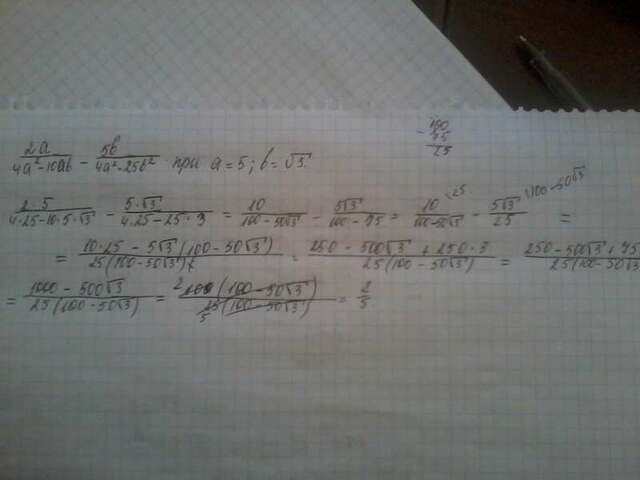 2a/(4a²-10ab) - 5b/(4a²-25b²) при a=5; b=√3.
- 100
75
25
2·5/(4·25-10·5·√3) - 5·√3/(4·25-25·3) = 10/(100-50√3) - 5√3/(100-75) = 10\25/(100-50√3) - 5√3\100-50√3/25 =
= (10·25 - 5√3(100-50√3))/(25(100-50√3)) = (250 - 500√3 + 250·3)/(25(100-50√3)) = (250-500√3+75/(25(100-50√3
= (1000-500√3)/(25(100-50√3)) = (100-50√3)/(25(100-50√3)) = 2/5